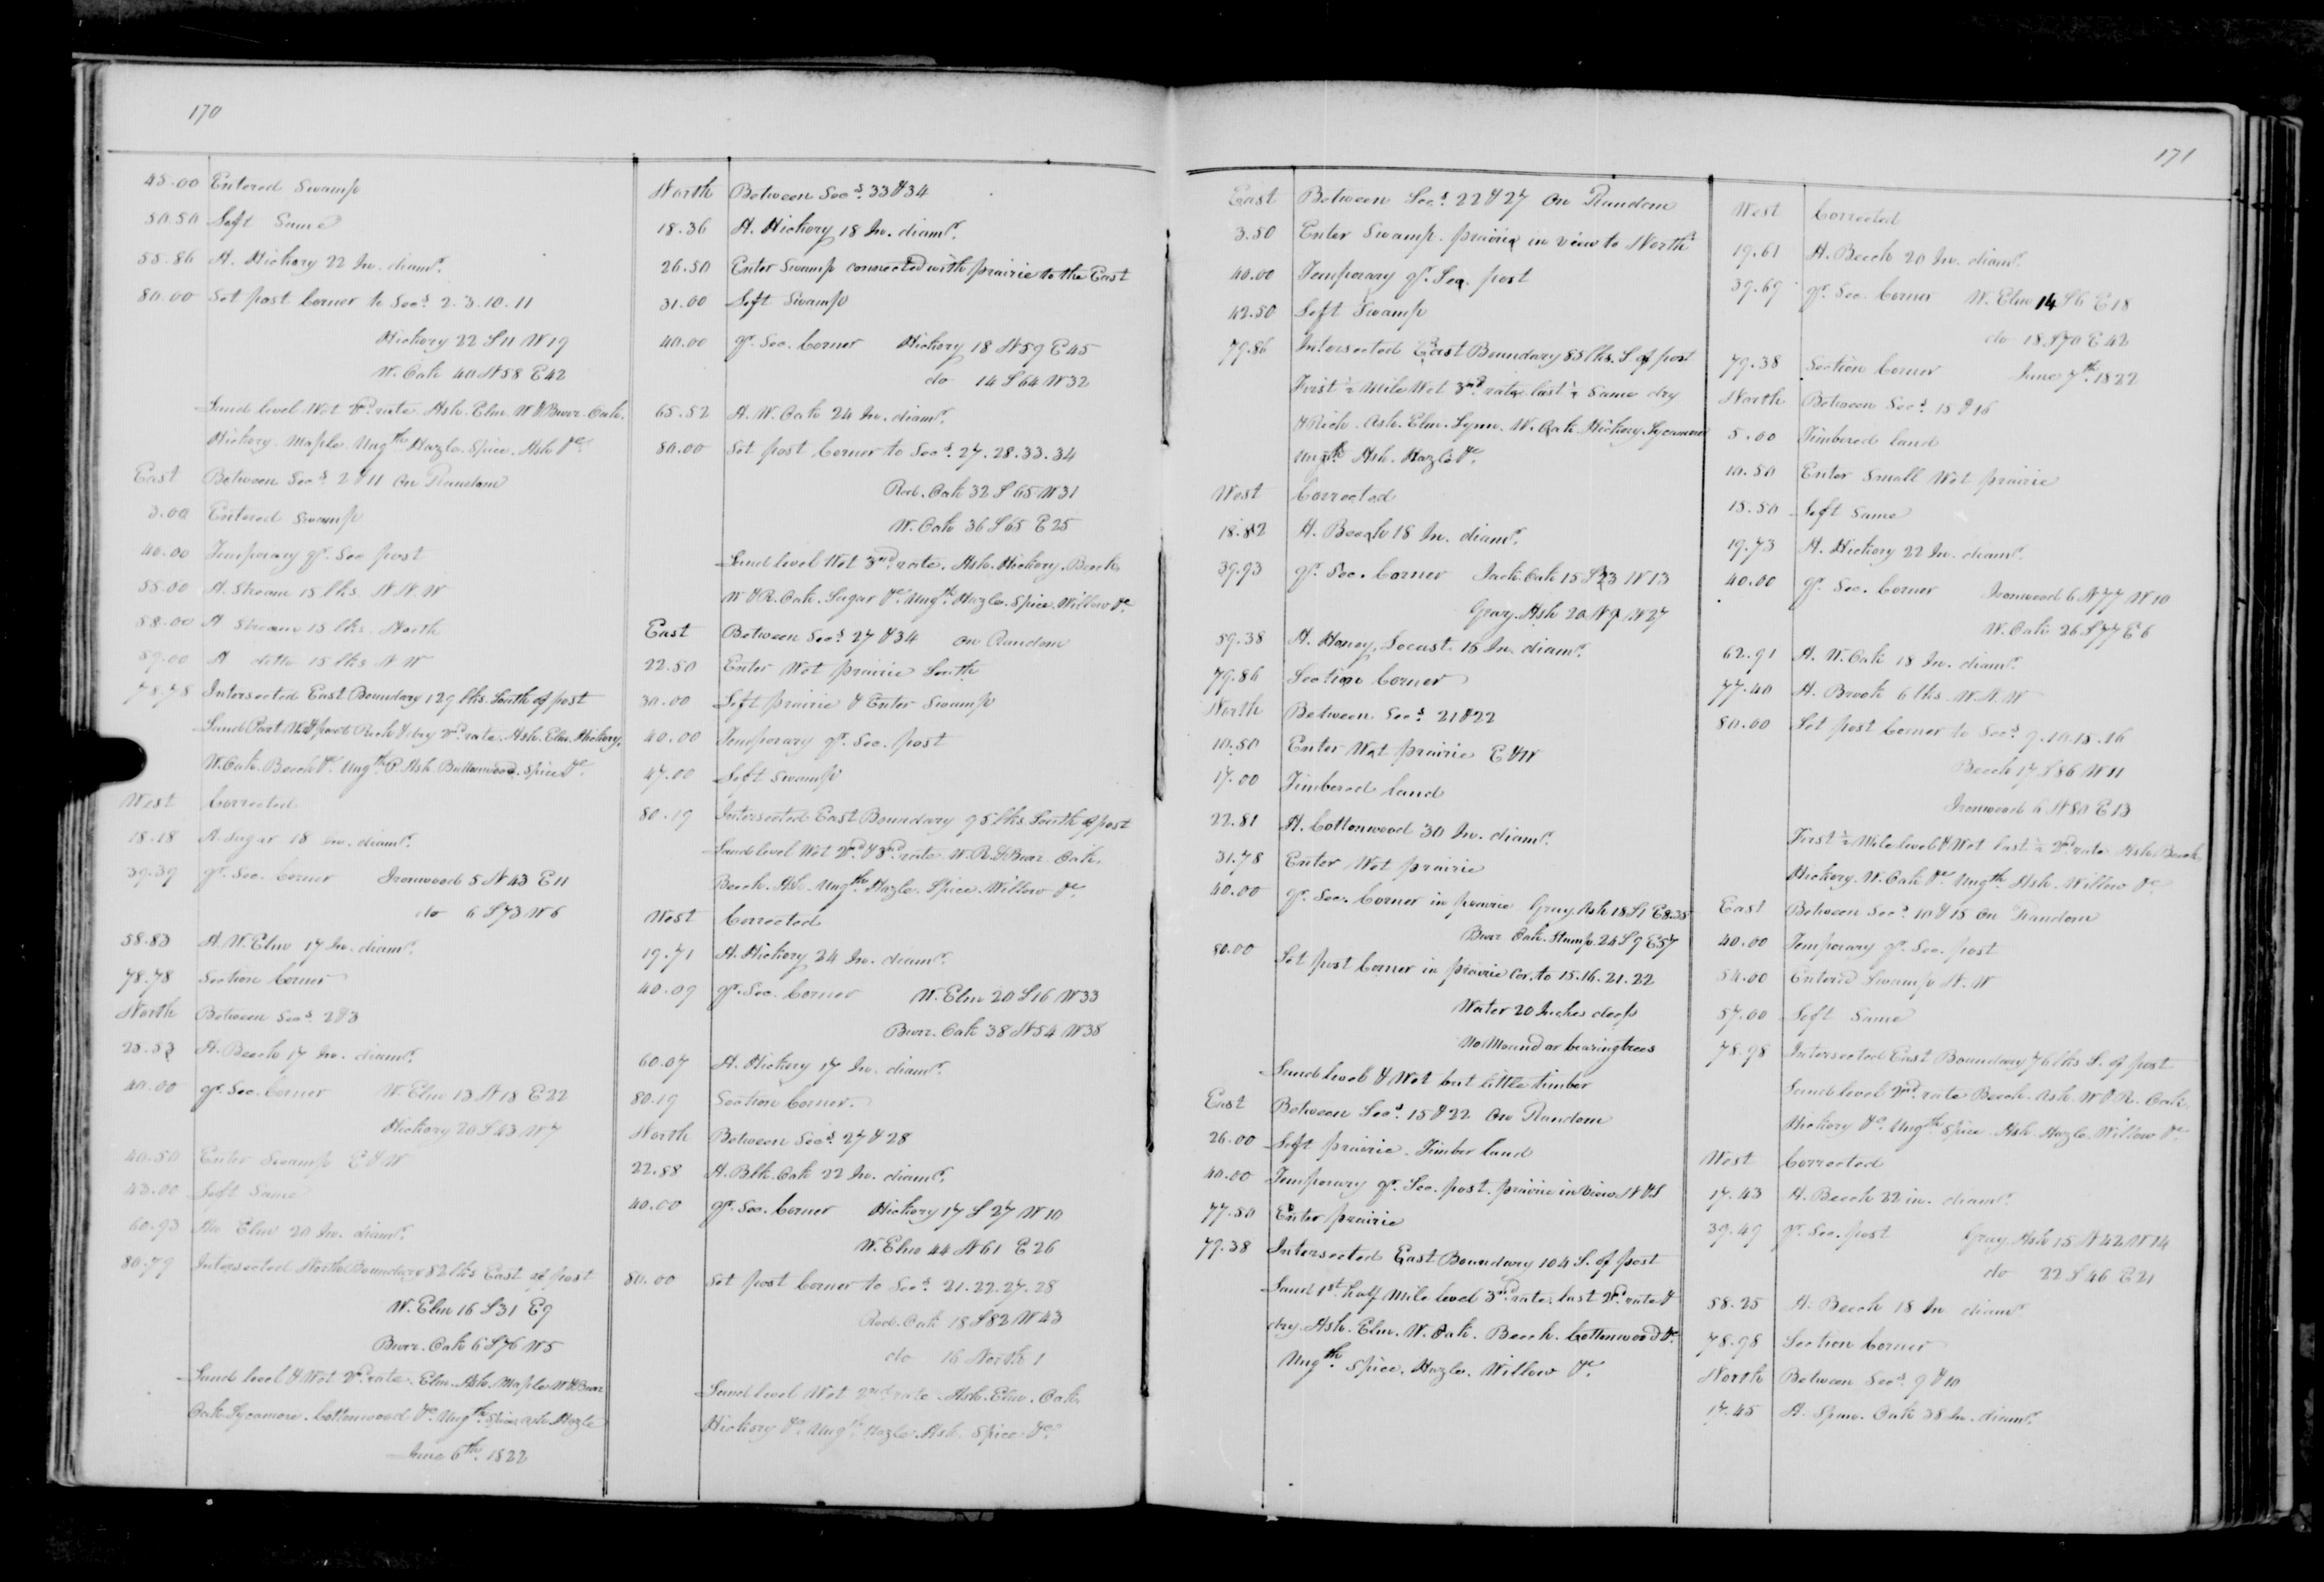 170
45.00 Entered Swamp
50.50 Left Same
55.86 A. Hickory 22 In. diamr.
80.00 Set post Corner to Secs. 2. 3. 10. 11
Hickory 22 S 11 W 19
W. Oak 40 N 58 E 42
Land level Wet 2nd. rate. Ash. Elm. W & Burr. Oak.
Hickory. Maple. Ungth. Hazle. Spice. Ash &c.
East Between Secs. 2 & 11 On Random
3.00 Entered Swamp
40.00 Temporary qr. Sec post
55.00 A. Stream 15 lks. N. N. W
58.00 A Stream 15 lks. North
59.00 A ditto 15 lks N W
78.78 Intersected East Boundary 129 lks. South of post
Land Part Wet & part Rich & dry 2nd. rate. Ash. Elm. Hickory.
W. Oak. Beech &c. Ungth. P. Ash Buttonwood. Spice &c.
West Corrected
18.18 A. Sugar 18 in. diamr.
39.39 qr. Sec. Corner Ironwood 5 N 43 E 11
do 6 S 73 W 6
58.83 A. W. Elm 17 In. diamr.
78.78 Section Corner
North Between Secs. 2 & 3
25.53 A. Beech 17 In. diamr.
40.00 qr. Sec. Corner W. Elm 13 N 18 E 22
Hickory 20 S 43 W 7
40.50 Enter Swamp E & W
43.00 Left Same
60.93 An Elm 20 In. diamr.
80.79 Intersected North Boundary 82 lks East of post
W. Elm 16 S 31 E 9
Burr. Oak 6 S 76 W 5
Land level & Wet 2nd. rate. Elm. Ash. Maple W & Burr
Oak. Sycamore. Cottonwood &c. Ungth. Spice Ash. Hazle
June 6th. 1822
North Between Secs. 33 & 34
18.36 A. Hickory 18 In. diamr.
26.50 Enter Swamp connected with prairie to the East
31.00 Left Swamp
40.00 qr. Sec. Corner Hickory 18 N 59 E 45
do 14 S 64 W 32
65.52 A. W. Oak 24 In. diamr.
80.00 Set post Corner to Secs. 27. 28. 33. 34
Red. Oak 32 S 65 W 31
W. Oak 36 S 65 E 25
Land level Wet 3rd. rate. Ash. Hickory. Beech
W & R. Oak. Sugar &c. Ungth. Hazle. Spice. Willow &c.
East Between Secs. 27 & 34 on Random
22.50 Enter Wet prairie South
30.00 Left prairie & Enter Swamp
40.00 Temporary qr. Sec. post
47.00 Left Swamp
80.19 Intersected East Boundary 95 lks. South of post
Land level Wet 2nd. & 3rd. rate. W. R. & Burr. Oak.
Beech. Ash. Ungth. Hazle. Spice. Willow &c.
West Corrected
19.71 A. Hickory 24 In. diamr.
40.09 qr. Sec. Corner W. Elm 20 S 16 W 33
Burr. Oak 38 N 54 W 38
60.07 A. Hickory 17 In. diamr.
80.19 Section Corner.
North Between Secs. 27 & 28
22.58 A. Blk. Oak 22 In. diamr.
40.00 qr. Sec. Corner Hickory 17 S 27 W 10
W. Elm 44 N 61 E 26
80.00 Set post Corner to Secs. 21. 22. 27. 28
Red. Oak 18 S 82 W 43
do 16 North 1
Land level Wet 2nd rate. Ash. Elm. Oak.
Hickory &c. Ungth. Hazle. Ash. Spice &c.
171
East Between Secs. 22 & 27 On Random
3.50 Enter Swamp. prairie in view to North
40.00 Temporary qr. Sec. post
42.50 Left Swamp
79.86 Intersected East Boundary 85 lks. S. of post
First ½ Mile Wet 3rd. rate last ½ Same dry
& Rich. Ash. Elm. Lynn. W. Oak. Hickory. Sycamore
Ungth. Ash. Hazle &c.
West Corrected
18.82 A. Beech 18 In. diamr.
39.93 qr. Sec. Corner Jack. Oak 15 S 23 W 13
Gray. Ash 20 N 9 W 27
59.38 A. Honey, Locust. 16 In. diamr.
79.86 Section Corner
North Between Secs. 21 & 22
10.50 Enter Wet prairie E & W
17.00 Timbered Land
22.81 A. Cottonwood 30 In. diamr.
31.78 Enter Wet prairie
40.00 qr. Sec. Corner in prairie Gray. Ash 18 S 1 E 8.35
Burr Oak. Stump. 24 S 9 E 57
80.00 Set post Corner in prairie Cor. to 15. 16. 21. 22
Water 20 Inches deep
No Mound or bearing trees
Land level & Wet but little timber
East Between Secs. 15 & 22 On Random
26.00 Left prairie. Timber land
40.00 Temporary qr. Sec. post. prairie in view N & S
77.50 Enter prairie
79.38 Intersected East Boundary 104 S. of post
Land 1st. half Mile level 3rd. rate. last 2nd. rate &
dry Ash. Elm. W. Oak. Beech. Cottonwood &c.
Ungth. Spice. Hazle. Willow &c.
West Corrected
19.61 A. Beech 20 In. diamr.
39.69 qr. Sec. Corner W. Elm 14 S 6 E 18
do 18 S 70 E 42
79.38 Section Corner June 7th. 1822
North Between Secs. 15 & 16
5.00 Timbered land
10.50 Enter Small Wet prairie
15.50 Left Same
19.73 A. Hickory 22 In. diamr.
40.00 qr. Sec. Corner Ironwood 6 N 77 W 10
W. Oak 26 S 77 E 6
62.91 A. W. Oak 18 In. diamr.
77.40 A. Brook 6 lks. W. N. W
80.00 Set post Corner to Secs. 9. 10. 15. 16
Beech 17 S 86 W 11
Ironwood 6 N 80 E 13
First ½ Mile level & Wet last ½ 2nd rate Ash. Beech
Hickory. W. Oak &c. Ungth. Ash. Willow &c.
East Between Secs. 10 & 15 On Random
40.00 Temporary qr. Sec. post
54.00 Entered Swamp N. W
57.00 Left Same
78.98 Intersected East Boundary 76 lks S. of post
Land level 2nd. rate Beech. Ash. W & R. Oak.
Hickory &c. Ungth Spice. Ash. Hazle. Willow &c.
West Corrected
17.43 A. Beech 22 in. diamr.
39.49 qr. Sec. post Gray Ash 15 N 42 W 14
do 22 S 46 E 21
58.25 A. Beech 18 In diamr.
78.98 Section Corner
North Between Secs. 9 & 10
17.45 A. Oak 38 In. diamr.